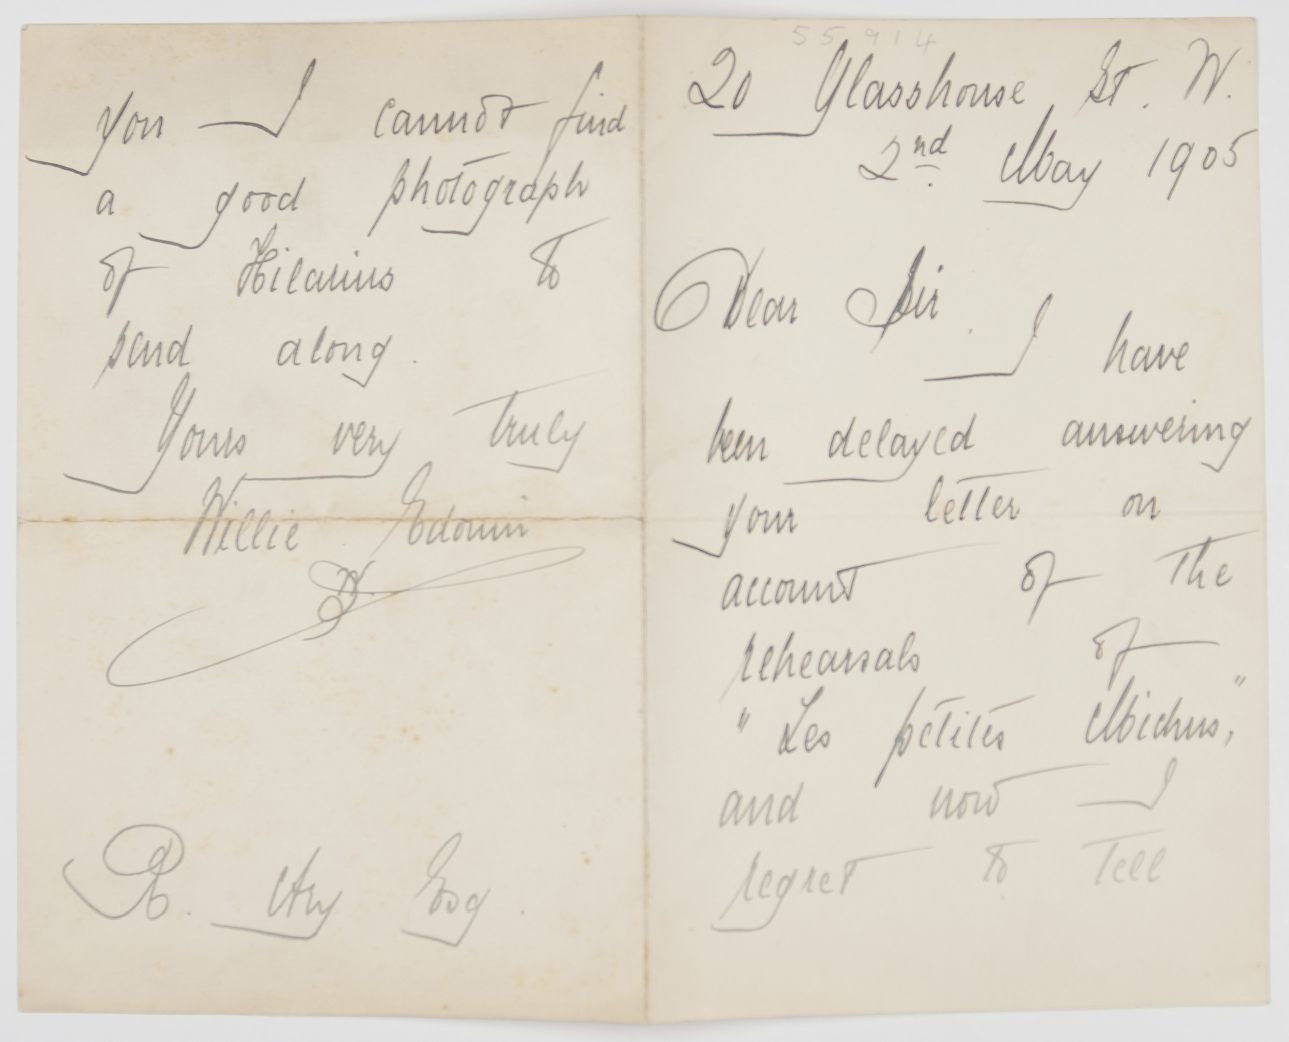 55914
20 Glasshouse St. W.
2nd May 1905
Dear Sir.
I have
been delayed answering
your letter on
account of the
rehearsals of
"Les petites Michus,"
and now I
regret to tell
you I cannot find
a good photograph
of Hilarius to
send along.
Yours very truly
Willie Edouin
R. Esq.